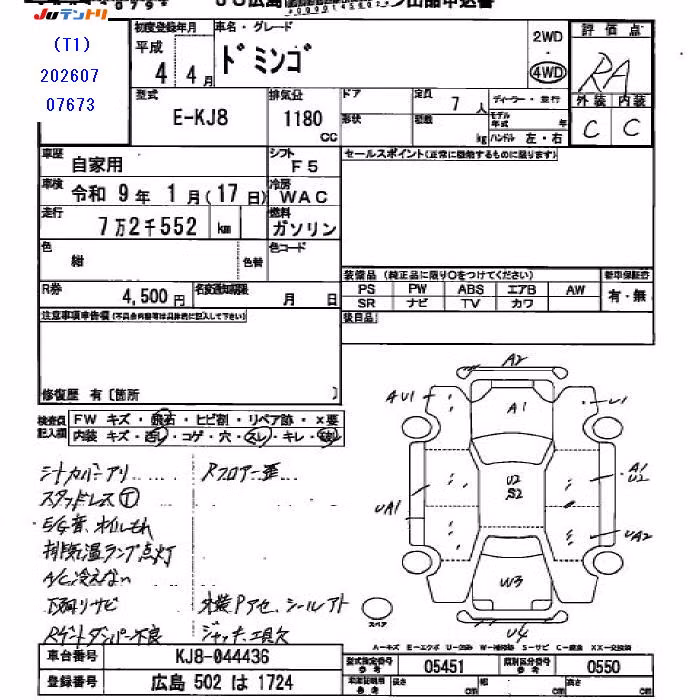 Juテントリ
(T1)
202607
07673
初度登録年月
平成
4年4月
車名・グレード
ドミンゴ
2WD
・
4WD
評価点
RA
外装 内装
C C
型式
E-KJ8
排気量
1180
cc
ドア
形状
定員
7人
積数
kg
ディーラー・並行
モデル年式 年
ハンドル 左・右
車歴
自家用
シフト
F5
車検
令和 9年 1月(17日)
冷房
WAC
走行
7万2千552 km
燃料
ガソリン
色
紺
色替
色コード
R券
4,500円
名変通知期限
月 日
セールスポイント(正常に機能するものに限ります)
装備品 (純正品に限り○をつけてください)
PS PW ABS エアB AW
SR ナビ TV カワ
新車保証書
有・無
後日品
注意事項申告欄(不具合内容等は具体的に記入して下さい)
修復歴 有〔箇所 〕
検査員記入欄
FW キズ・飛石・ヒビ割・リペア跡・×要
内装 キズ・汚レ・コゲ・穴・スレ・キレ・破レ
シートカバーアリ
Rフロア歪
スタッドレスⓉ
E/G音、オイルもれ
排気温ランプ点灯
A/C冷えない
下廻りサビ
内装Pアセ、シールアト
Rゲートダンパー不良
ジャッキ、工具欠
A2
4U1
A1
U1
UA1
U2
S2
A1
U2
UA2
W3
U4
スペア
A-キズ E-エクボ U-凹み W-補修跡 S-サビ C-腐食 XX-交換済
車台番号
KJ8-044436
登録番号
広島 502 は 1724
型式指定番号
参考
05451
類別区分番号
参考
0550
車庫証明用
参考
長さ cm
幅 cm
高さ cm